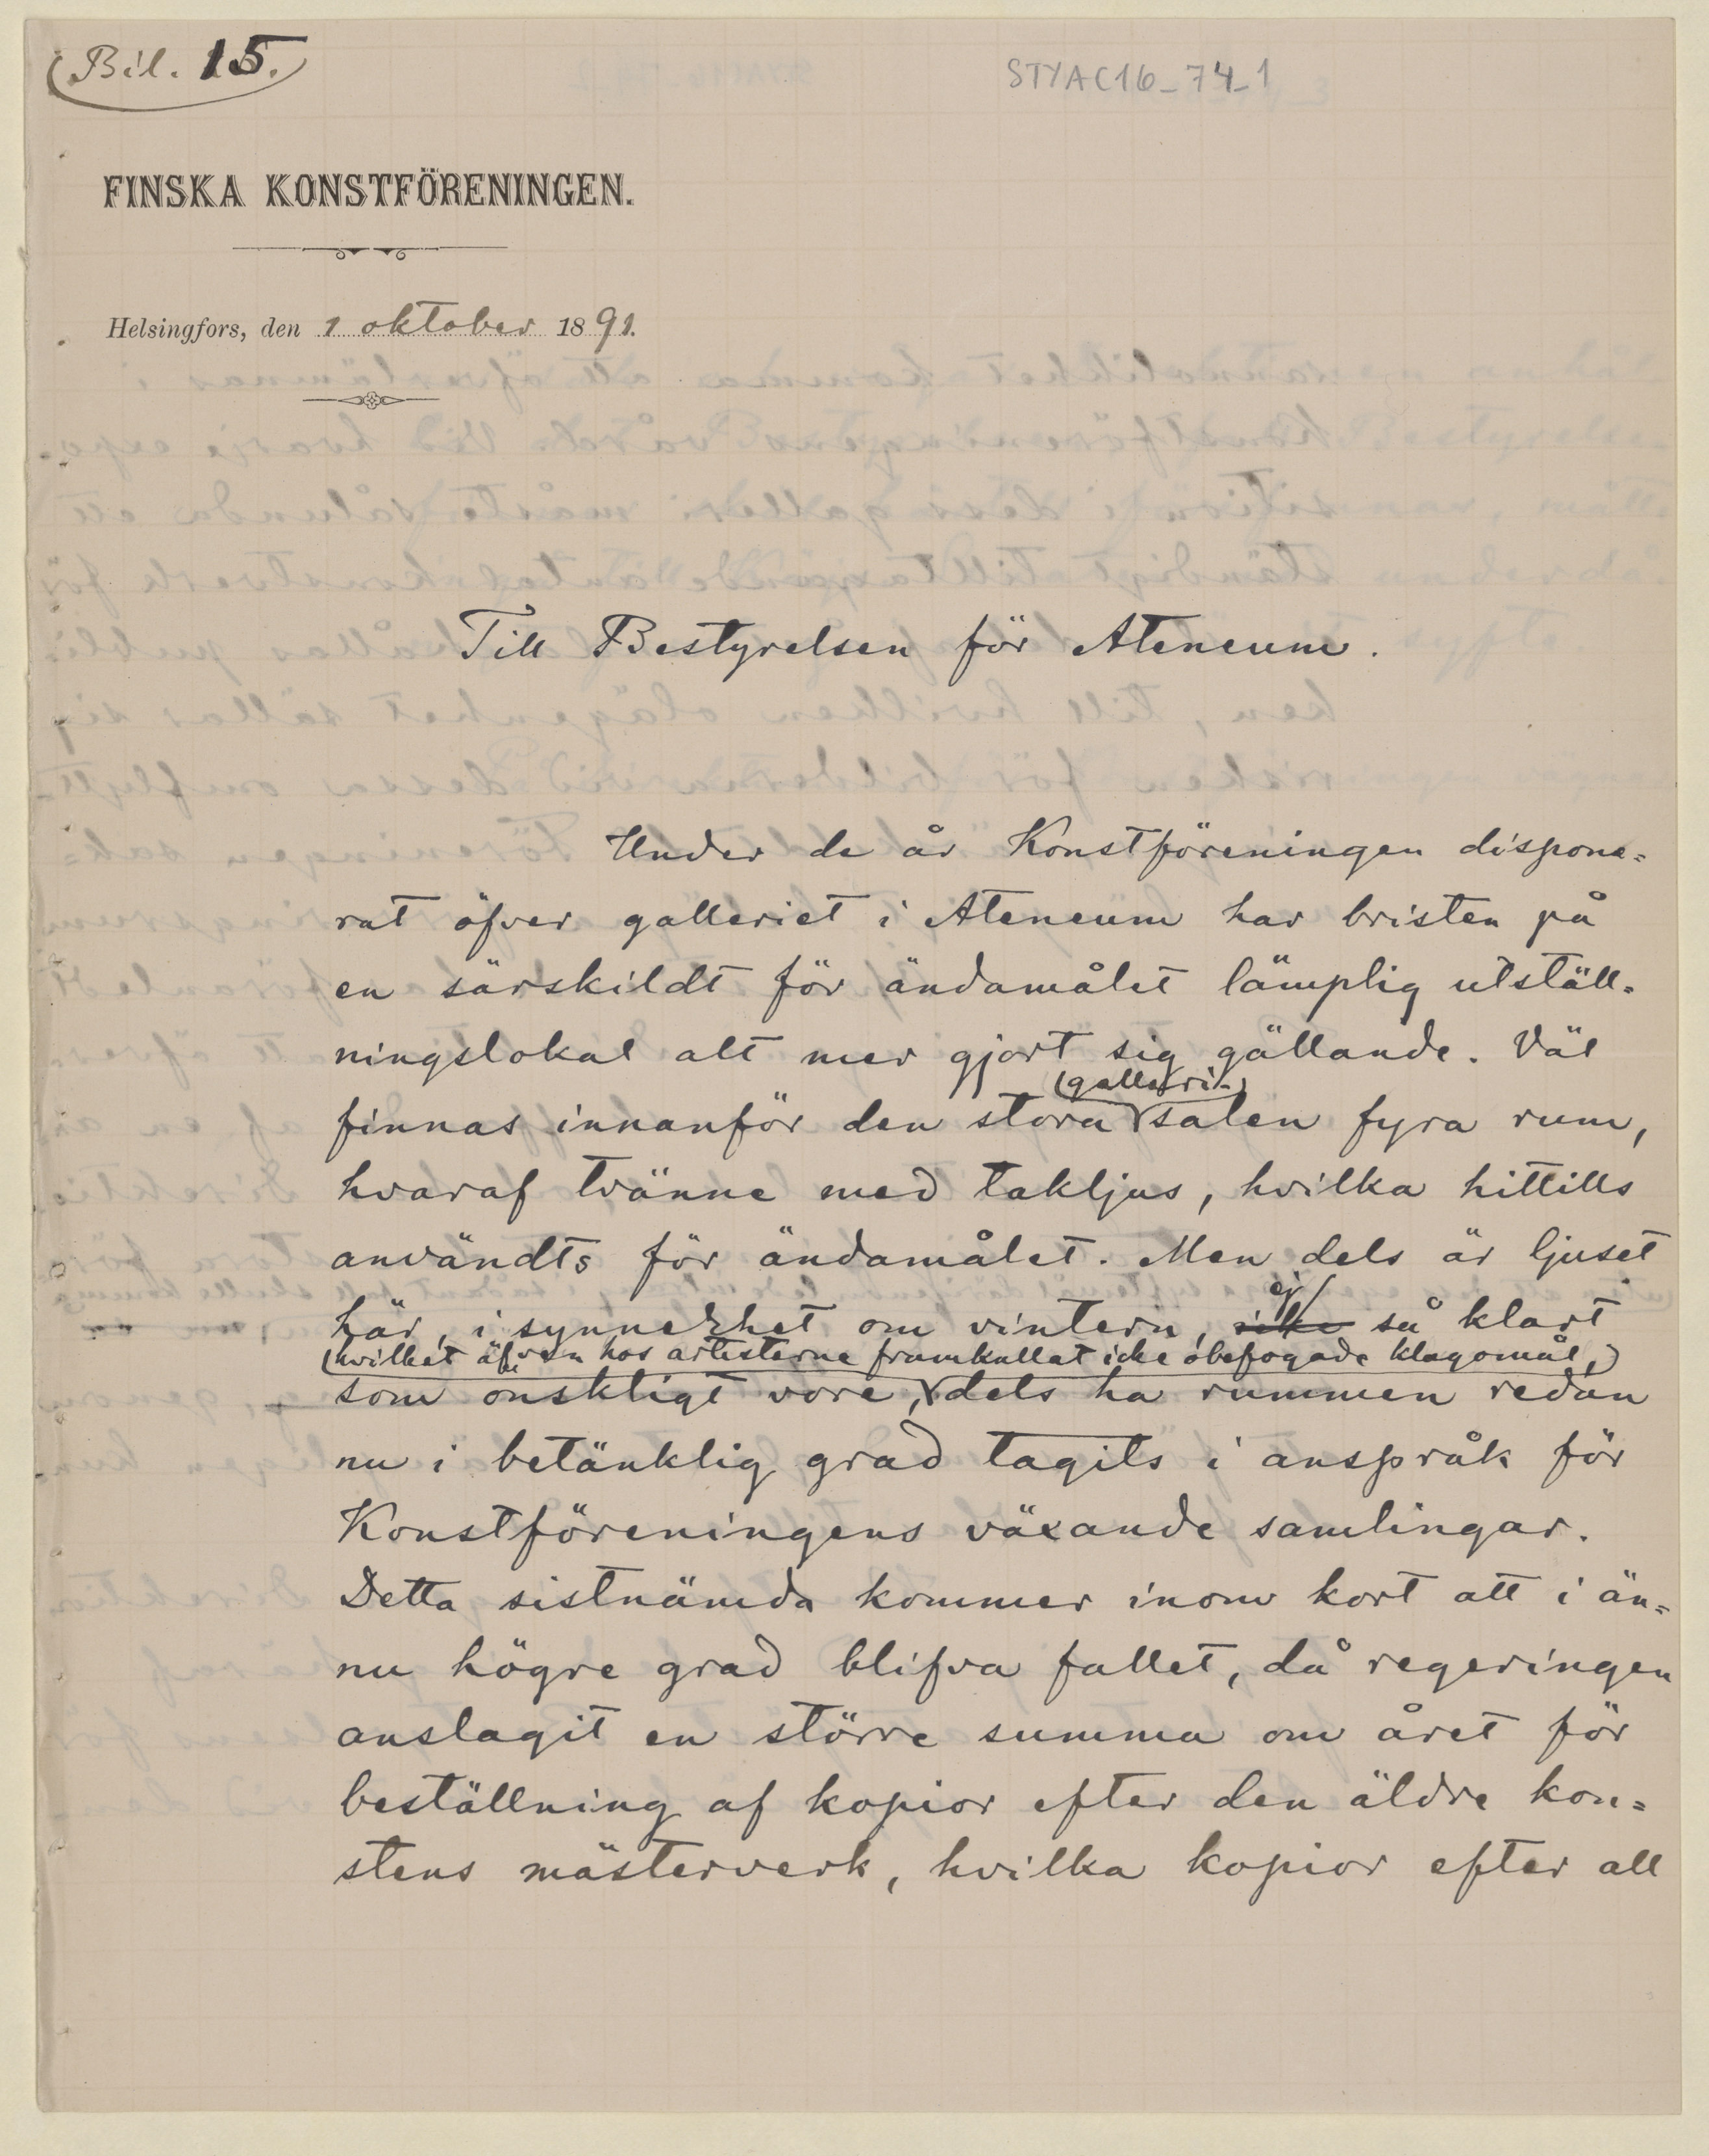 (Bil. 15.)
STYAC16_74_1
FINSKA KONSTFÖRENINGEN.
Helsingfors, den 1 oktober 1891.
Till Bestyrelsen för Ateneum.
Under de år Konstföreningen dispone=
rat öfver galleriet i Ateneum har bristen på
en särskildt för ändamålet lämplig utställ=
ningslokal alt mer gjort sig gällande. Väl
(galleri-)
finnas innanför den stora salen fyra rum,
hvaraf tvänne med takljus, hvilka hittills
användts för ändamålet. Men dels är ljuset
ej
här, i synnerhet om vintern, icke så klart
(hvilket äfven hos artisterne framkallat icke obefogade klagomål,)
som önskligt vore, dels ha rummen redan
nu i betänklig grad tagits i anspråk för
Konstföreningens växande samlingar.
Detta sistnämda kommer inom kort att i än=
nu högre grad blifva fallet, då regeringen
anslagit en större summa om året för
beställning af kopior efter den äldre kon=
stens mästerverk, hvilka kopior efter all